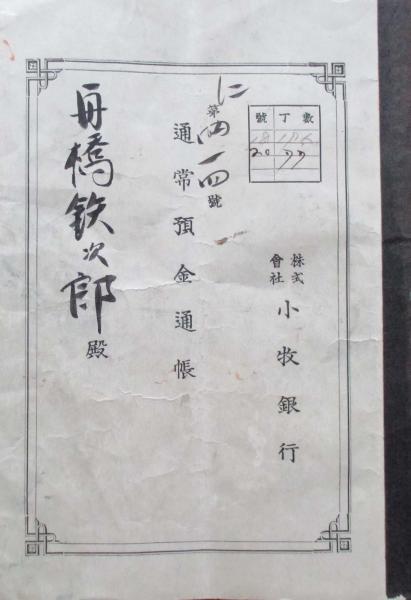 數丁號
20 77
株式會社小牧銀行
に
第四一四號
通常預金通帳
舟橋鉄次郎殿